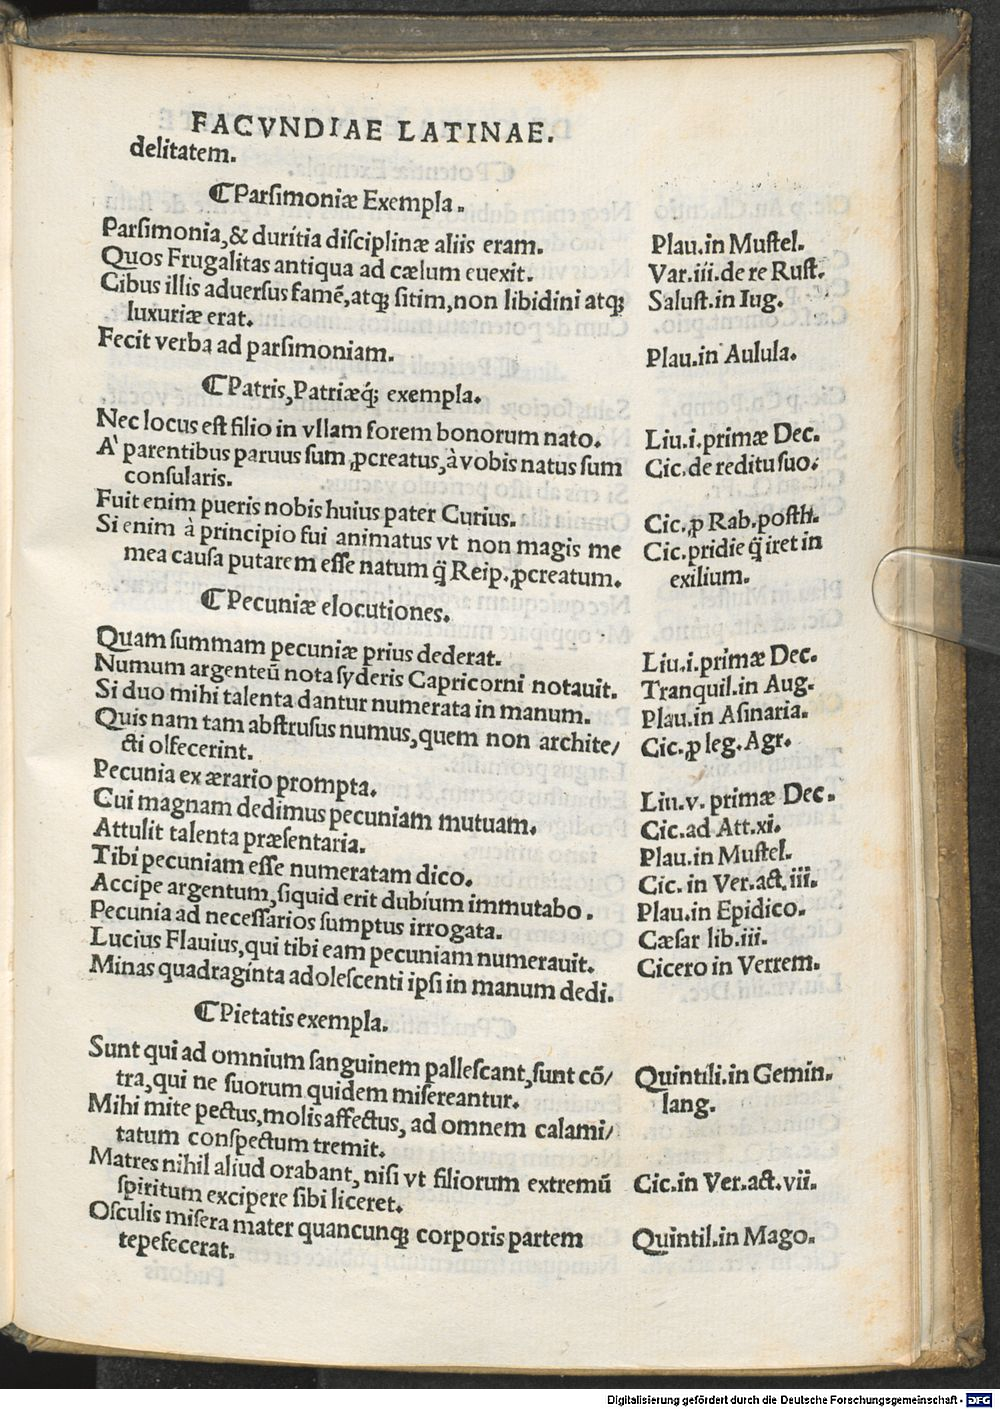 FACVNDIAE LATINAE.
delitatem.
⸿Parsimoniæ Exempla.
Parsimonia, & duritia disciplinæ aliis eram. Plau.in Mustel.
Quos Frugalitas antiqua ad cælum euexit. Var.iii.de re Rust.
Cibus illis aduersus famẽ, atq; sitim, non libidini atq; Salust.in Iug.
luxuriæ erat.
Fecit verba ad parsimoniam. Plau.in Aulula.
⸿Patris, Patriæq́; exempla.
Nec locus est filio in vllam forem bonorum nato. Liu.i.primæ Dec.
A' parentibus paruus sum ꝓcreatus, à vobis natus sum Cic.de reditu suo.
consularis.
Fuit enim pueris nobis huius pater Curius. Cic.ꝓ Rab.posth.
Si enim à principio fui animatus vt non magis me Cic.pridie q̃ iret in
mea causa putarem esse natum q̃ Reip. ꝓcreatum. exilium.
⸿Pecuniæ elocutiones.
Quam summam pecuniæ prius dederat. Liu.i.primæ Dec.
Numum argenteũ nota syderis Capricorni notauit. Tranquil.in Aug.
Si duo mihi talenta dantur numerata in manum. Plau.in Asinaria.
Quis nam tam abstrusus numus, quem non archite/ Cic.ꝓ leg.Agr.
cti olfecerint.
Pecunia ex ærario prompta. Liu.v. primæ Dec.
Cui magnam dedimus pecuniam mutuam. Cic.ad Att.xi.
Attulit talenta præsentaria. Plau.in Mustel.
Tibi pecuniam esse numeratam dico. Cic. in Ver.act.iii.
Accipe argentum, siquid erit dubium immutabo. Plau.in Epidico.
Pecunia ad necessarios sumptus irrogata. Cæsar lib.iii.
Lucius Flauius, qui tibi eam pecuniam numerauit. Cicero in Verrem.
Minas quadraginta adolescenti ipsi in manum dedi.
⸿Pietatis exempla.
Sunt qui ad omnium sanguinem pallescant, sunt cõ/ Quintili.in Gemin.
tra, qui ne suorum quidem misereantur. lang.
Mihi mite pectus, molis affectus, ad omnem calami/
tatum conspectum tremit.
Matres nihil aliud orabant, nisi vt filiorum extremũ Cic.in Ver.act.vii.
spiritum excipere sibi liceret.
Osculis misera mater quancunq; corporis partem Quintil.in Mago.
tepefecerat.
Digitalisierung gefördert durch die Deutsche Forschungsgemeinschaft - DFG